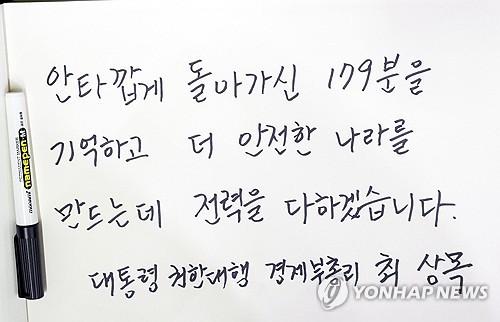 안타깝게 돌아가신 179분을
기억하고 더 안전한 나라를
만드는데 전력을 다하겠습니다.
대통령 권한대행 경제부총리 최 상목
YONHAP NEWS